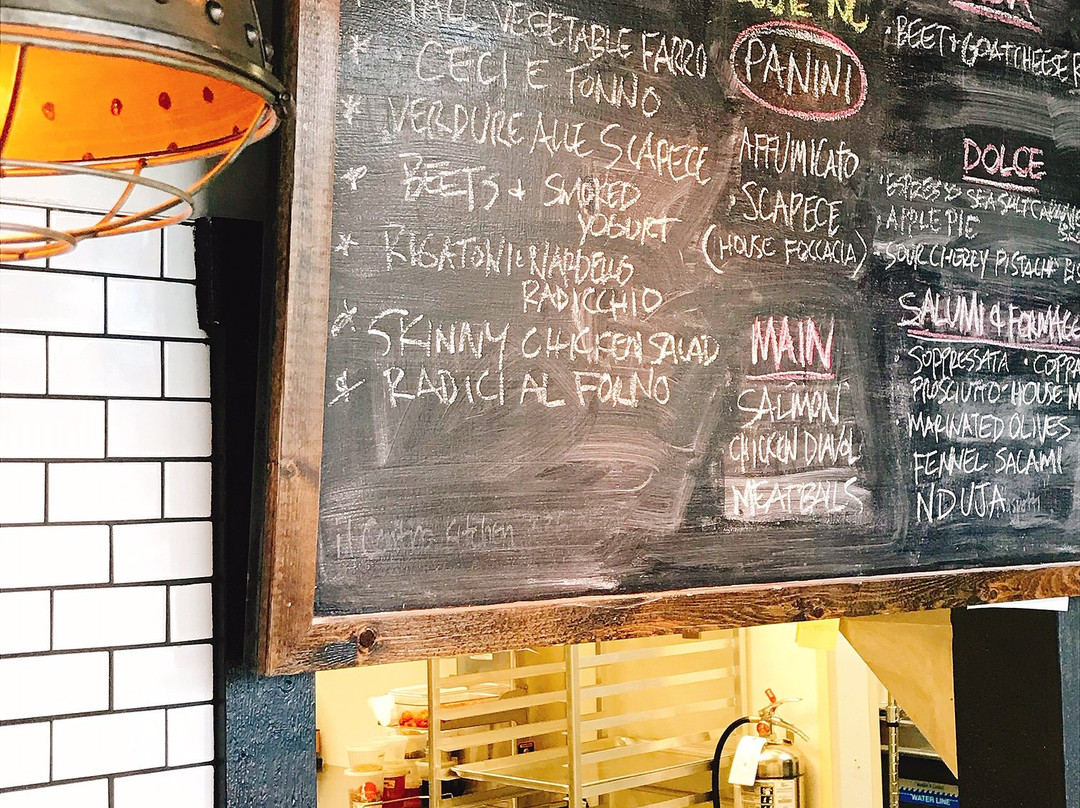 FALL VEGETABLE FARRO
* CECI E TONNO
* VERDURE ALLE SCAPECE
* BEETS & SMOKED
YOGURT
* RIGATONI NARDELLO
RADICCHIO
* SKINNY CHICKEN SALAD
* RADICI AL FORNO
PANINI
AFFUMICATO
SCAPECE
(HOUSE FOCCACIA)
MAIN
SALMON
CHICKEN DIAVOL
MEATBALLS
BEET & GOAT CHEESE
DOLCE
SEA SALT
APPLE PIE
SOUR CHERRY PISTACHE
SALUMI & FORMAGG
SOPPRESSATA · COPPA
PROSCIUTTO · HOUSE M
MARINATED OLIVES
FENNEL SALAMI
NDUJA
Kitchen
WATER LINE